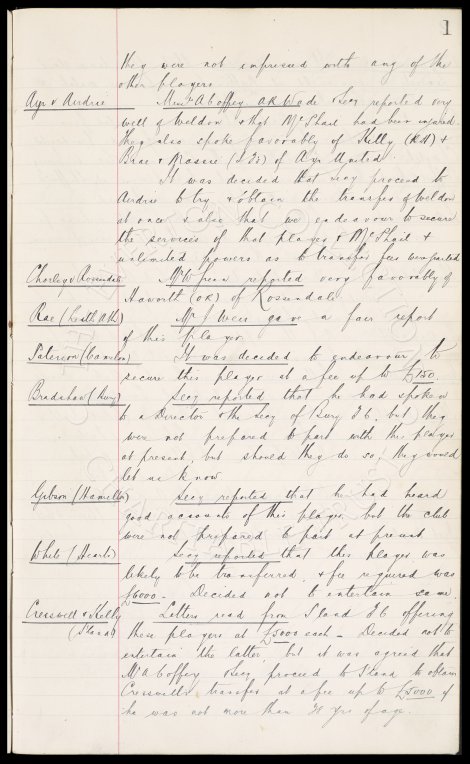 1
they were not impressed with any of the
other players
Ayr v Airdrie Messrs A Coffey A R Wade & Secy reported very
well of Weldon & that McPhail had been injured
they also spoke favorably of Kelly (RH) &
Brae & Massie of Ayr United
It was decided that Secy proceed to
Airdrie & try & obtain the transfer of Weldon
at once & also that we endeavour to secure
the services of that player & McPhail &
unlimited powers as to transfer fees
Chorley v Rossendale Mr W reported very favorably of
Haworth (OR) of Rossendale
Rae ( ) Mr J Weir gave a fair report
of this player
Paterson (Camelon) It was decided to endeavour to
secure this player at a fee up to £150.
Bradshaw (Bury) Secy reported that he had spoken
to a Director & the Secy of Bury FC but they
were not prepared to part with this player
at present, but should they do so, they would
let us know
Gibson (Hamilton) Secy reported that he had heard
good accounts of this player but the club
were not prepared to part at present
White (Hearts) Secy reported that this player was
likely to be transferred & fee required was
£6000 - Decided not to entertain same
Cresswell & Kelly Letters read from Sland FC offering
(Sland) these players at £5000 each - Decided not to
entertain the latter but it was agreed that
Mr A Coffey & Secy proceed to Sland to obtain
Cresswell's transfer at a fee up to £5000 if
he was not more than yrs of age.